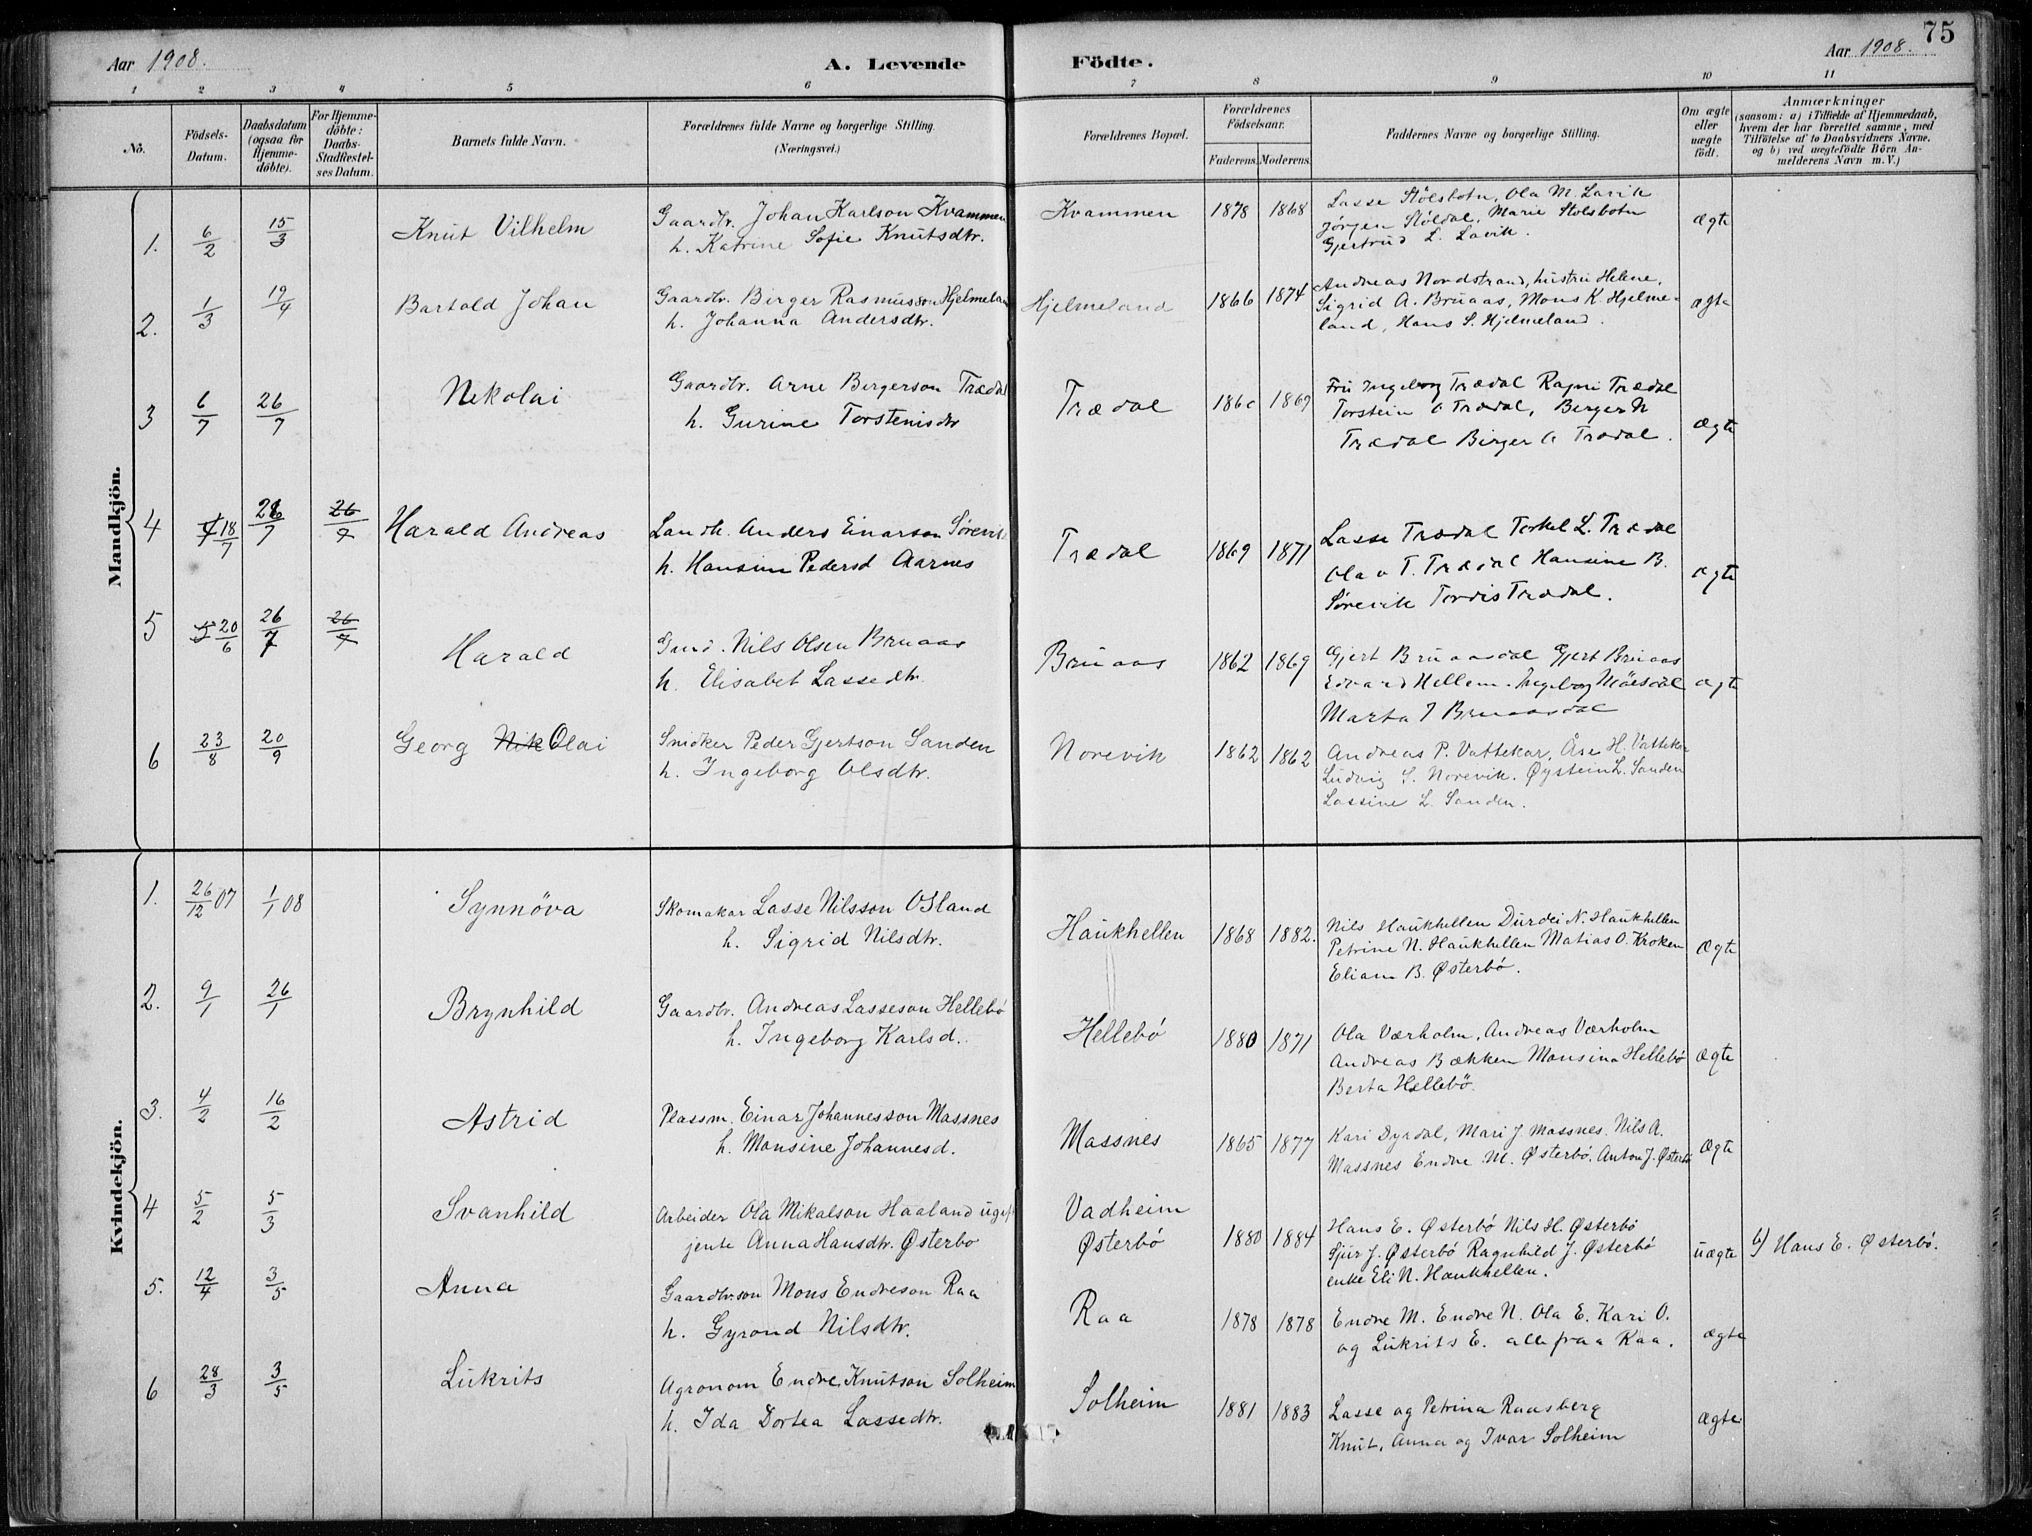 75
Aar 1908.
A. Levende Födte.
Aar 1908.
1 2 3 4 5 6 7 8 9 10 11
No.
Födsels-Datum.
Daabsdatum (ogsaa for Hjemmedöbte).
For Hjemmedöbte: Daabs-Stadfæstelses Datum.
Barnets fulde Navn.
Forældrenes fulde Navne og borgerlige Stilling. (Næringsvei.)
Forældrenes Bopæl.
Forældrenes Födselsaar.
Faderens. Moderens.
Faddernes Navne og borgerlige Stilling.
Om ægte eller uægte födt.
Anmærkninger
(saasom: a) i Tilfælde af Hjemmedaab,
hvem der har forrettet samme, med
Tilföielse af to Daabsvidners Navne.
og b) ved uægtefödte Börn Anmelderens Navn m. V.)
Mandkjön.
1. 6/2 15/3 Knut Vilhelm
Gaardbr. Johan Karlson Kvammen
h. Katrine Sofie Knutsdtr.
Kvammen 1878 1868
Lasse Stölsbotn, Ola M. Lavik
Jörgen Stöldal, Marie Stolsbotn
Gjertrud L. Lavik.
ægte
2. 1/3 19/4 Bartold Johan
Gaardbr. Birger Rasmusson Hjelmeland
h. Johanna Andersdtr.
Hjelmeland 1866 1874
Andreas Nordstrand, hustru Helene,
Sigrid A. Bruaas, Mons K. Hjelme-
land, Hans S. Hjelmeland.
ægte
3 6/7 26/7 Nekolai
Gaardbr. Arne Bergerson Trædal
h. Gurine Torstensdtr
Trædal 1869
Fru Ingeborg Trædal Ragni Trædal
Torstein A Trædal, Berger N
Trædal Birger A Trædal.
ægte
4 18/7 26/7 26/7 Harald Andreas
Landh. Anders Einarson Sörevik
h. Hansine Pedersd Aarnes
Trædal 1869 1871
Lasse Trædal Torkel L. Trædal
Olav T. Trædal Hansine B.
Sörevik Tordis Trædal.
ægte
5 20/6 26/7 26/7 Harald
Nils Olsen Bruaas
h. Elisabet Lassedtr.
Bruaas 1862 1869
Gjert Bruaasdal Gjert Bruaas
Edvard Hellem. Ingeborg
Marta J Bruaasdal
ægte
6 23/8 20/9 Georg Nikolai
Snidker Peder Gjertson Sanden
h. Ingeborg Olsdtr.
Norevik 1862 1862
Andreas P. Vattekar, Åse H. Vattekar
Ludvig S. Norevik. Øystein L. Sanden
Lassine L. Sanden.
Kvindekjön.
1. 26/12 07 1/1 08 Synnöva
Skomakar Lasse Nilsson Osland
h. Sigrid Nilsdtr.
Haukhellen 1868 1882.
Nils Haukhellen Durdei N. Haukhellen
Petrine N. Haukhellen Matias O. Kroken
Eliam B. Østerbö.
ægte
2. 9/1 26/1 Brynhild
Gaardbr. Andreas Lasseson Hellebö
h. Ingeborg Karlsd.
Hellebö 1880 1871
Ola Værholm, Andreas Værholm
Andreas Bækken Monsina Hellebö
Berta Hellebö.
ægte
3. 4/2 16/2 Astrid
Plassm. Einar Johannesson Massnes
h. Monsine Johannesd.
Massnes 1865 1877
Kari Dyrdal, Mari J. Massnes. Nils A.
Massnes Endre M. Østerbö. Anton J. Østerbö
ægte
4 5/2 5/3 Svanhild
Arbeider Ola Mikalson Haaland ugift
jente Anna Hansdtr. Østerbo
Vadheim
Østerbö 1880 1884
Hans E. Østerbö Nils H. Østerbö
Sjur J. Østerbö Ragnhild J. Østerbö
enke Eli N. Haukhellen.
uægte b) Hans E. Østerbö.
5. 12/4 3/5 Anna
Gaardbr.son Mons Endreson Raa
h. Gyrond Nilsdtr.
Raa 1878 1878
Endre M. Endre N. Ola E. Kari O.
og Lukrits E. alle fraa Raa.
ægte
6 28/3 3/5 Lukrits
Agronom Endre Knutson Solheim
h. Ida Dortea Lassedtr.
Solheim 1881 1883
Lasse og Petrina Raasberg
Knut, Anna og Ivar Solheim
ægte